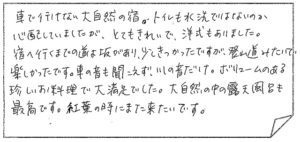 車で行けない大自然の宿。トイレも水洗ではないのか
心配していましたが、とてもきれいで、洋式もありました。
宿へ行くまでの道は坂があり、少しきつかったですが、登山道みたいで
楽しかったです。車の音も聞こえず、川の音だけ。ボリュームのある
珍しいお料理で大満足でした。大自然の中の露天風呂も
最高です。紅葉の時にまた来たいです。